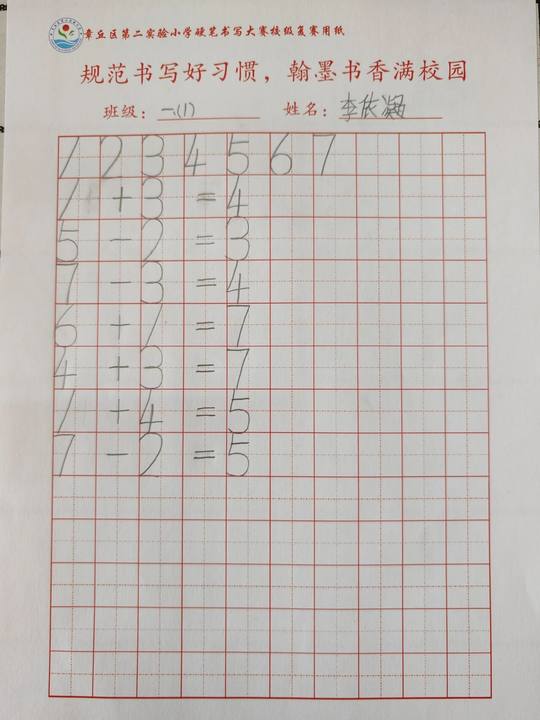 章丘区第二实验小学硬笔书写大赛校级复赛用纸
规范书写好习惯，翰墨书香满校园
班级：一.(1) 姓名：李依凝
1 2 3 4 5 6 7
1 + 3 = 4
5 - 2 = 3
7 - 3 = 4
6 + 1 = 7
4 + 3 = 7
1 + 4 = 5
7 - 2 = 5